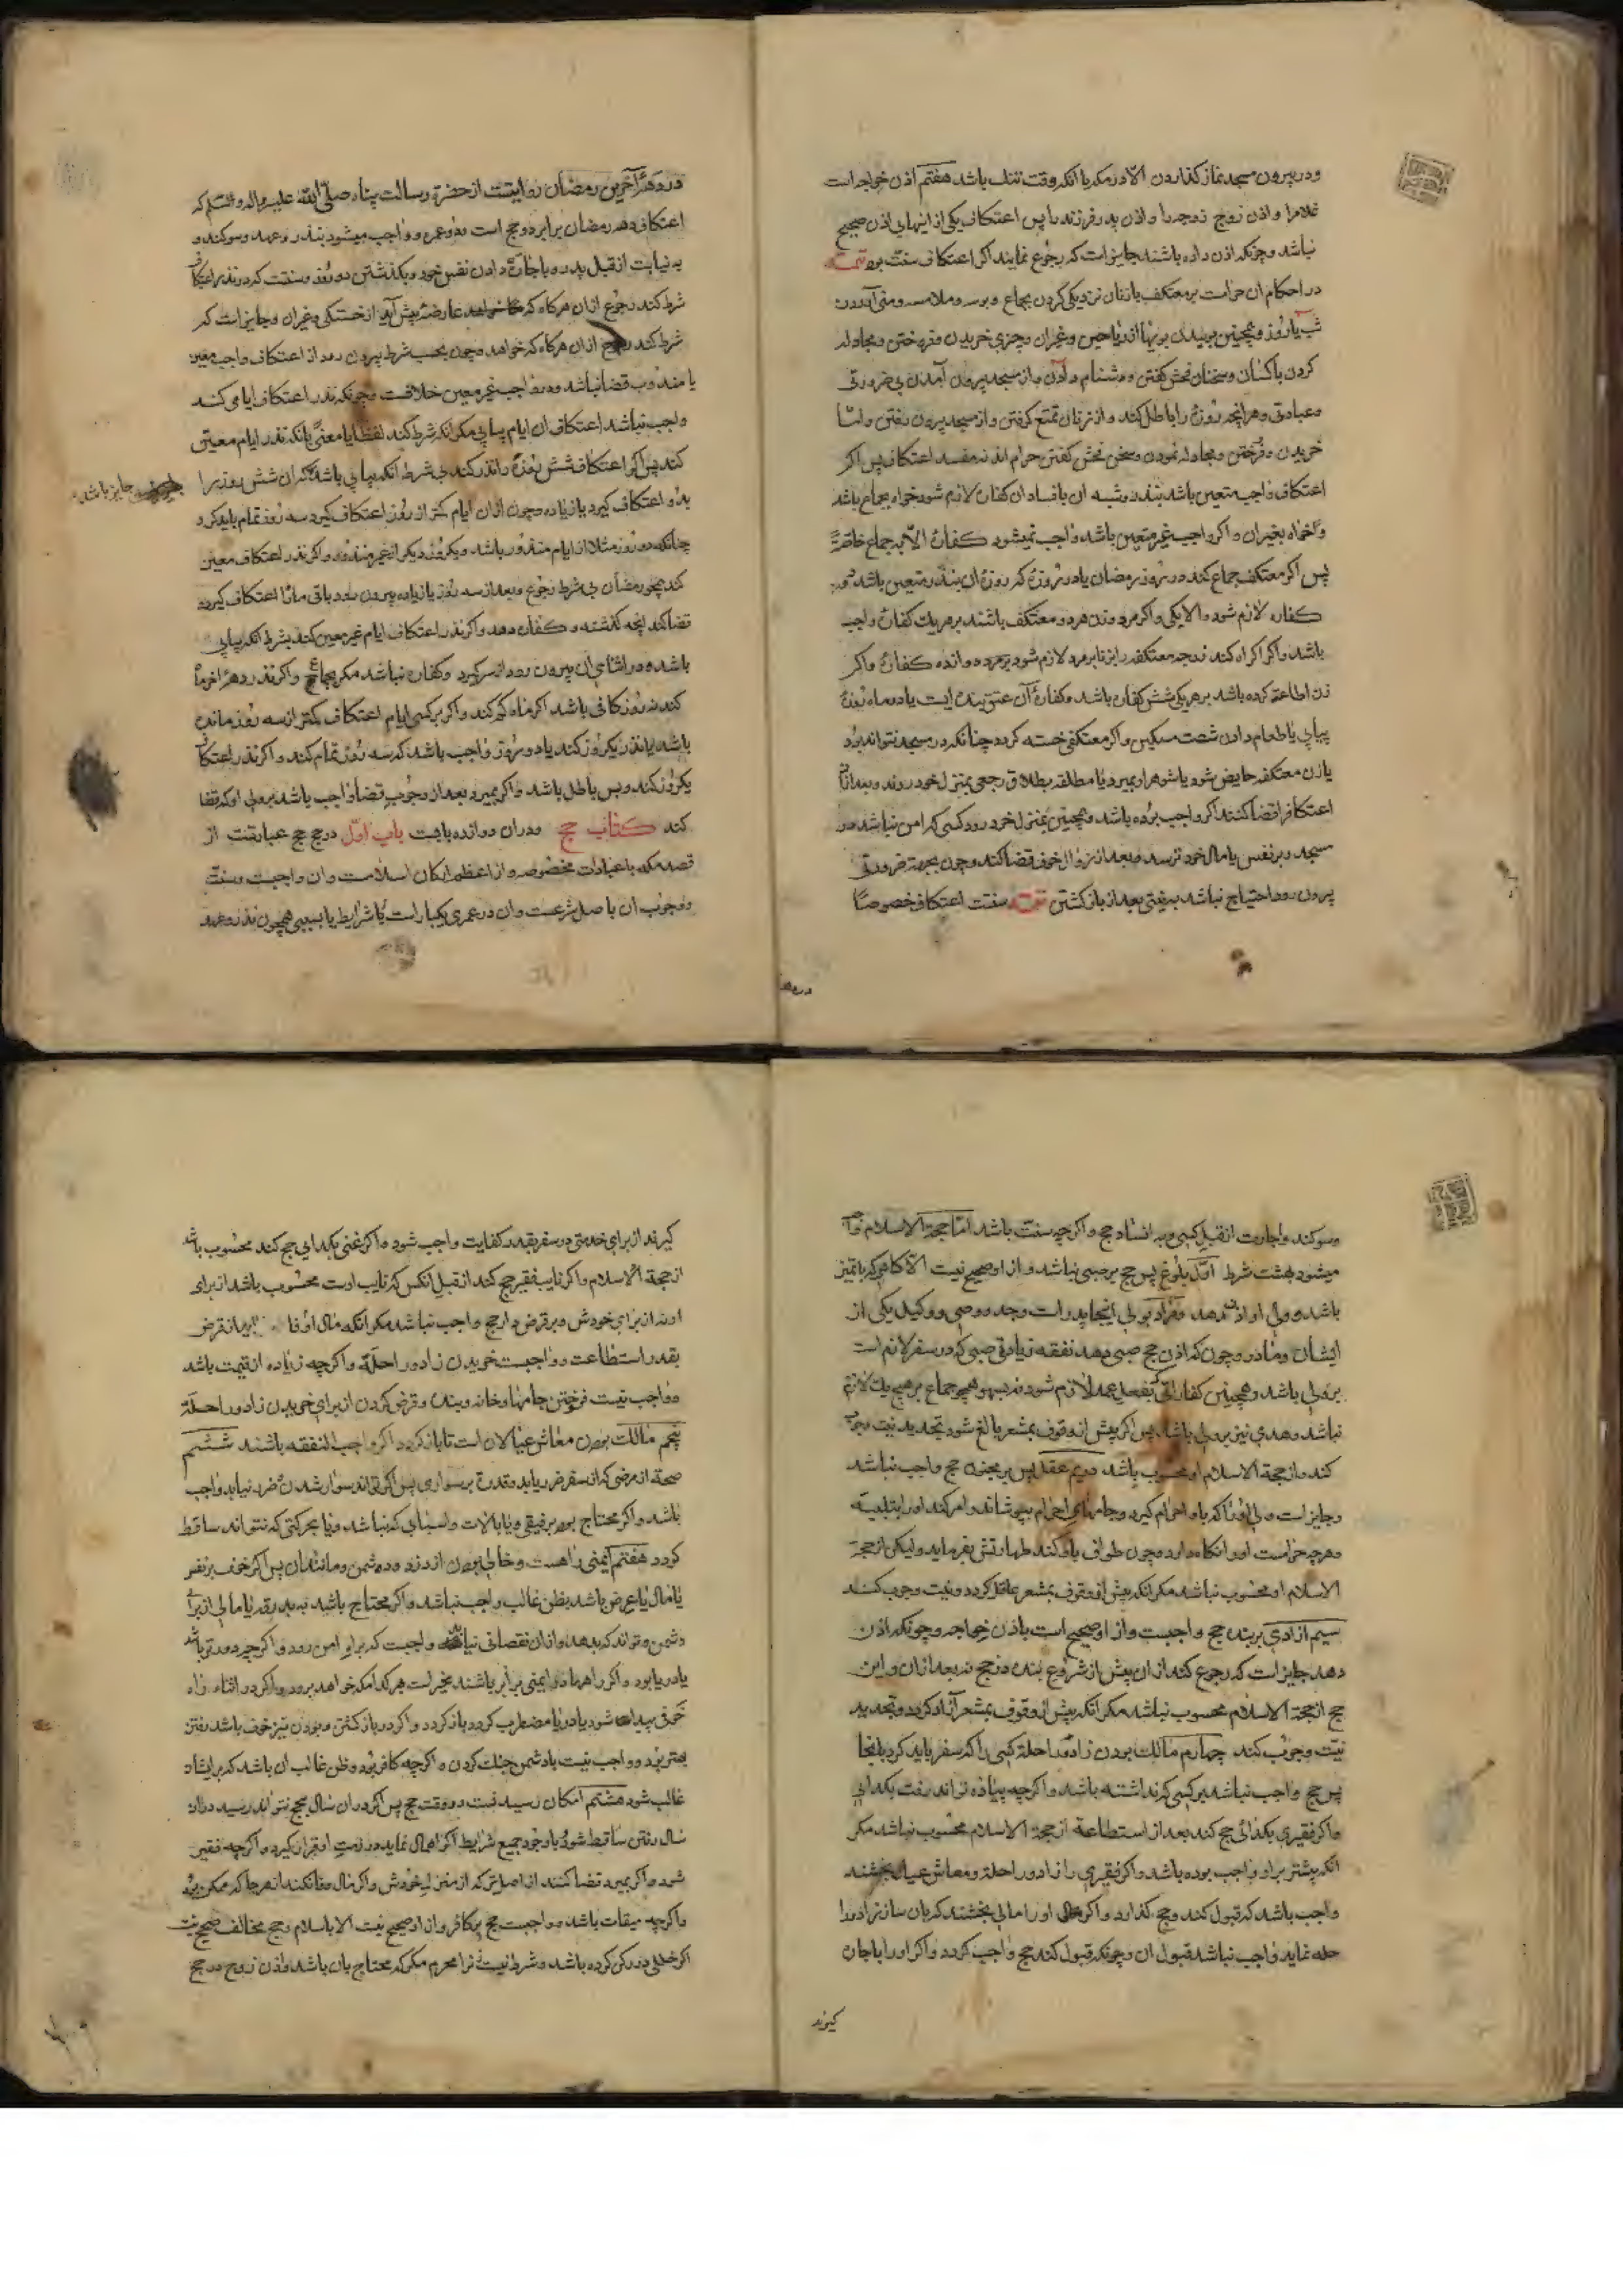 ودر بیرون مسجد نماز کذاردن الا در مکه با انکه وقت تنك باشد هفتم اذن خواجه است
غلام را و اذن زوج زوجه را و اذن پدر فرزند را پس اعتکاف یکی از اینها بی اذن صحیح
نباشد و چونکه اذن داده باشند جایز است که رجوع نمایند اکر اعتکاف سنت بود تتمه
در احکام ان حرامست بر معتکف با زنان نزدیکی کردن بجماع و بوسه و ملامسه و منی آوردن
شب یا روز و همچنین بوییدن بویها از ریاحین و غیر ان و چیزی خریدن و فروختن و مجادله
کردن با کسان و سخنان فحش کفتن و دشنام دادن و از مسجد بیرون آمدن بی ضرورتی
و عبادتی و هر انچه روزه را باطل کند و از زنان تمتع کرفتن و از مسجد بیرون رفتن و اما
خریدن و فروختن و مجادله نمودن و سخن فحش کفتن حرام اند نه مفسد اعتکاف پس اکر
اعتکاف واجب متعین باشد بنذر و شبه ان بافساد ان کفاره لازم شود خواه بجماع باشد
و خواه بغیر ان و اکر واجب غیر متعین باشد واجب نمیشود کفاره الا بجماع خاصة
پس اکر معتکف جماع کند در روز رمضان یا در روزه که روزه ان بنذر متعین باشد دو
کفاره لازم شود والا یکی و اکر مرد و زن هر دو معتکف باشند بر هر یك کفاره واجب
باشد و اکر اکراه کند زوجه معتکفه را بزنا بر مرد لازم شود بر مرد دوازده کفاره و اکر
زن اطاعت کرده باشد بر هر یکی شش کفاره باشد و کفاره آن عتق بنده ایست یا دو ماه روزه
پیاپی یا طعام دادن شصت مسکین و اکر معتکفی خسته کردد چنانکه در مسجد نتواند بود
یا زن معتکفه حایض شود یا شوهر او بمیرد یا مطلقه بطلاق رجعی بمنزل خود روند و بعد از ان
اعتکاف را قضا کنند اکر واجب بوده باشد و همچنین بمنزل خود رود کسی که امن نباشد در
مسجد و بر نفس یا مال خود ترسد و بعد از زوال خوف قضا کند و چون بجهت ضرورتی
بیرون رود احتیاج نباشد به نیتی بعد از باز کشتن تتمه سنت اعتکاف خصوصا
در دهه
در دهه آخرین رمضان روایتست از حضرت رسالت پناه صلی الله علیه واله وسلم که
اعتکاف دهه رمضان برابر دو حج است و دو عمره و واجب میشود بنذر و عهد و سوکند و
به نیابت از قبل پدر و باجارة دادن نفس خود و بکذشتن دو روز و سنتست که در نذر اعتکاف
شرط کند رجوع از ان هرکاه که عارضه پیش آید از خستکی و غیر ان و جایز است که
شرط کند رجوع از ان هرکاه که خواهد و چون بحسب شرط بیرون رود از اعتکاف واجب معین
یا مندوب قضا نباشد و در واجب غیر معین خلافست و چونکه نذر اعتکاف ایامی کند
واجب نباشد اعتکاف ان ایام پیاپی مکر انکه شرط کند لفظا یا معنی بانکه نذر ایام معین
کند پس اکر اعتکاف شش روزه را نذر کند بی شرط انکه پیاپی باشد که ان شش روز را
جایز باشد
بدو اعتکاف کیرد یا زیاده و چون از ان ایام کمتر از روز اعتکاف کیرد سه روز تمام باید کرد
چنانکه دو روز مثلا از ایام منذور باشد و یکروز دیکر از غیر منذور و اکر نذر اعتکاف معین
کند همچو رمضان بی شرط رجوع و بعد از سه روز یا زیاده بیرون رود باقی مانرا اعتکاف کیرد و
قضا کند انچه کذشته و کفاره دهد و اکر نذر اعتکاف ایام غیر معین کند بشرط انکه پیاپی
باشد و در اثنای ان بیرون رود از سر کیرد و کفاره نباشد مکر بجماع و اکر نذر دهه آخر ماه
کند نه روز کافی باشد اکر ماه کم کند و اکر بر کسی ایام اعتکاف کمتر از سه روز مانده
باشد یا نذر یکروز کند یا دو روز واجب باشد که سه روز تمام کند و اکر نذر اعتکاف
یکروز کند و بس باطل باشد و اکر بمیرد بعد از وجوب قضا واجب باشد بر ولی او که قضا
کند کتاب حج ودران دوازده بابست باب اول در حج حج عبارتست از
قصد مکه با عبادات مخصوصه و از اعظم ارکان اسلامست وان واجبست و سنت
و وجوب ان باصل شرعست وان در عمری یکبار است با شرایط یا بسببی همچون نذر و عهد
وسوکند و اجارت از قبل کسی و به افساد حج و اکرچه سنت باشد اما حجة الاسلام واجب
میشود بهشت شرط اول بلوغ پس حج بر صبی نباشد و از او صحیح نیست الا کاهی که با تمیز
باشد و ولی او اذن دهد و مراد بولی اینجا پدر است و جد و وصی و وکیل یکی از
ایشان و مادر و چون که اذن حج صبی دهد نفقه زیادتی صبی که در سفر لازم است
بر ولی باشد و همچنین کفاراتی که بفعل عمد لازم شود نه بسهو همچو جماع بر هیچ یك لازم
نباشد و هدی نیز بر ولی باشد پس اکر پیش از وقوف بمشعر بالغ شود تجدید نیت وجوب
کند و از حجة الاسلام او محسوب باشد دویم عقل پس بر مجنون حج واجب نباشد
و جایز است ولی او را که باو احرام کیرد و جامهای احرام بپوشاند و امر کند او را بتلبیه
و هرچه حرامست او را نکاه دارد و چون طواف باو کند طهارتش بفرماید و لیکن از حجة
الاسلام او محسوب نباشد مکر انکه پیش از وقوف بمشعر عاقل کردد و نیت وجوب کند
سیم ازادی بر بنده حج واجبست و از او صحیح است باذن خواجه و چونکه اذن
دهد جایز است که رجوع کند از ان پیش از شروع بنده در حج نه بعد از ان و این
حج از حجة الاسلام محسوب نباشد مکر انکه پیش از وقوف بمشعر آزاد کردد و تجدید
نیت وجوب کند چهارم مالك بودن زاد و راحلة کسی را که سفر باید کرد بانجا
پس حج واجب نباشد بر کسی که نداشته باشد و اکرچه پیاده تواند رفت بکدایی
و اکر فقیری بکدائی حج کند بعد از استطاعة از حجة الاسلام محسوب نباشد مکر
انکه پیشتر بر او واجب بوده باشد و اکر فقیری را زاد و راحلة و معاش عیال بخشند
واجب باشد که قبول کند و حج کذارد و اکر او را مالی بخشند که بان ساز زاد و را
حله نماید واجب نباشد قبول ان و چونکه قبول کند حج واجب کردد و اکر او را باجارت
کیرند
کیرند از برای خدمتی در سفر بقدر کفایت واجب شود و اکر غنی بکدایی حج کند محسوب باشد
از حجة الاسلام و اکر نایب فقیر حج کند از قبل انکس که نایب اوست محسوب باشد از برای
او نه از برای خودش و بر قرض دار حج واجب نباشد مکر انکه مال او بعد از قرض
بقدر استطاعت و واجبست خریدن زاد و راحلة و اکرچه زیاده از قیمت باشد
و واجب نیست فروختن جامها و خانه و بنده و قرض کردن از برای خریدن زاد و راحلة
پنجم مالك بودن معاش عیالان است تا باز کردد اکر واجب النفقه باشند ششم
صحة از مرضی که از سفر ضرر یابد و قدرة بر سواری پس اکر تواند سوار شدن و ضرر نیابد واجب
باشد و اکر محتاج بود برفیقی و یا بآلات و اسبابی که نباشد و یا بحرکتی که نتواند ساقط
کردد هفتم ایمنی راهست و خالی بودن از دزد و دشمن و مانند ان پس اکر خوف بر نفس
یا مال یا عرض باشد بظن غالب واجب نباشد و اکر محتاج باشد به بدرقه یا مالی از برای
دشمن و تواند که بدهد و از ان نقصانی نیابد واجبست که براه امن رود و اکرچه دورتر باشد
یا در یا بود و اکر راهها در ایمنی برابر باشند مخیر است هر کدامکه خواهد برود و اکر در اثناء راه
خوفی پیدا شود یا دریا مضطرب کردد باز کردد و اکر در باز کشتن و بودن نیز خوف باشد رفتن
بهتر بود و واجب نیست با دشمن جنك کردن و اکرچه کافر بود و ظن غالب ان باشد که بر ایشان
غالب شود هشتم امکان رسیدنست در وقت حج پس اکر در ان سال بحج نتواند رسید دران
سال رفتن ساقط شود و با وجود جمیع شرایط اکر اهمال نماید در ذمت او قرار کیرد و اکرچه فقیر
شود و اکر بمیرد قضا کنند از اصل ترکه از منزل خودش و اکر مال وفا نکند از هرجا که ممکن بود
و اکرچه میقات باشد و واجبست حج بر کافر و از او صحیح نیست الا باسلام و حج مخالف صحیح نیست
اکر خللی در رکن کرده باشد و شرط نیست زنرا محرم مکر که محتاج بان باشد و اذن زوج در حج